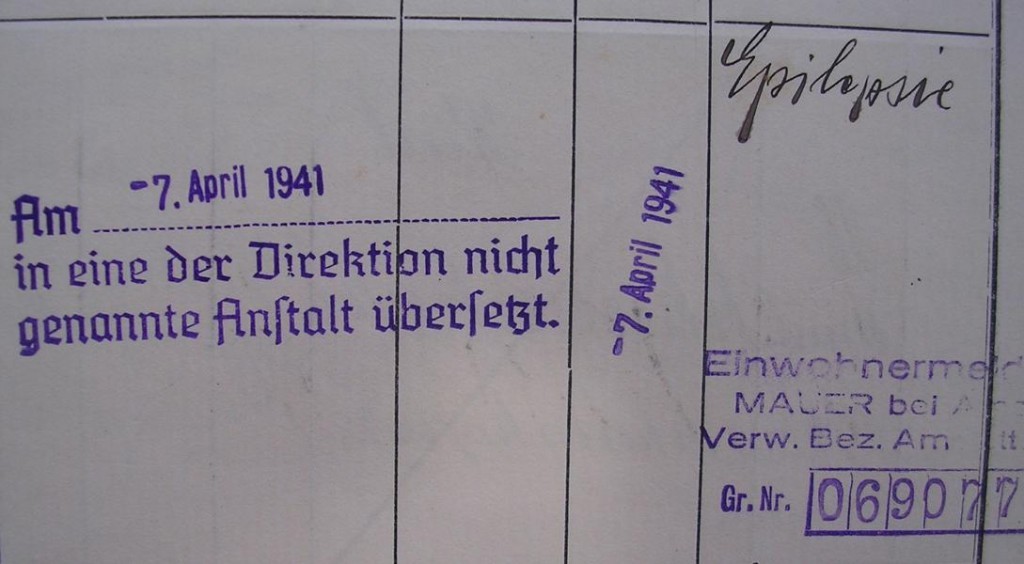 Epilepsie
-7. April 1941
Am
in eine der Direktion nicht
genannte Anstalt übersetzt.
-7. April 1941
Einwohnermeld
MAUER bei
Verw. Bez. Am
Gr. Nr. 069077